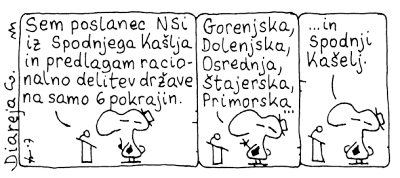 Diareja
Sem poslanec NSi
iz Spodnjega Kašlja
in predlagam racio-
nalno delitev države
na samo 6 pokrajin.
Gorenjska,
Dolenjska,
Osrednja,
Štajerska,
Primorska...
...in
Spodnji
Kašelj.